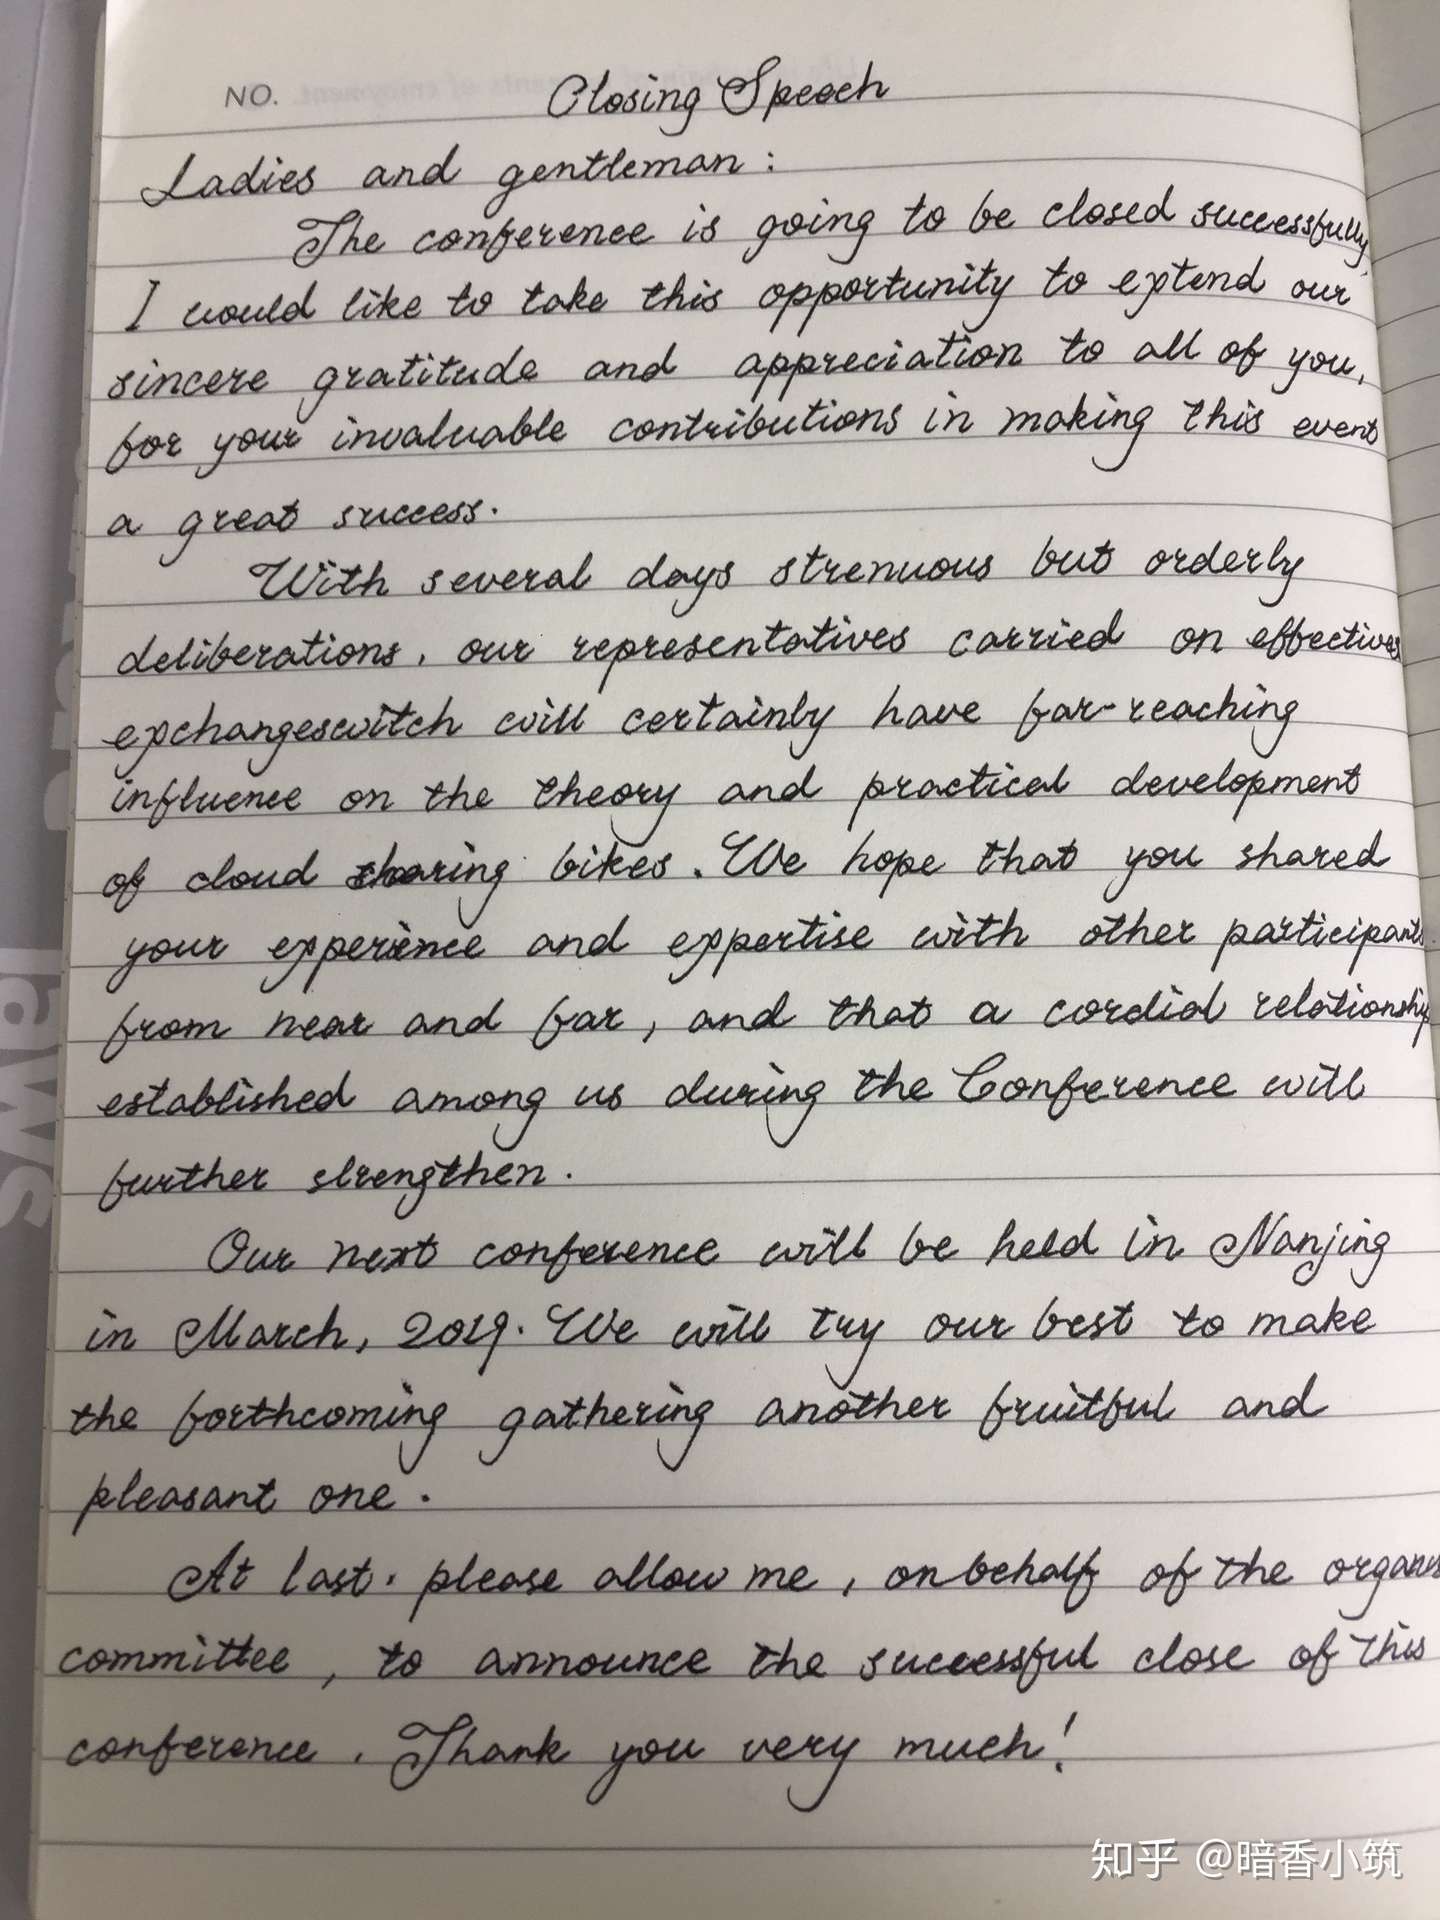 NO.
Closing Speech
Ladies and gentleman:
The conference is going to be closed successfully,
I would like to take this opportunity to extend our
sincere gratitude and appreciation to all of you,
for your invaluable contributions in making this event
a great success.
With several days strenuous but orderly
deliberations, our representatives carried on effectives
exchangeswitch will certainly have far-reaching
influence on the theory and practical development
of cloud sharing bikes. We hope that you shared
your experience and expertise with other participants
from near and far, and that a cordial relationship
established among us during the Conference will
further strengthen.
Our next conference will be held in Nanjing
in March, 2019. We will try our best to make
the forthcoming gathering another fruitful and
pleasant one.
At last. please allow me, on behalf of the
committee, to announce the successful close of this
conference. Thank you very much!
知乎 @暗香小筑